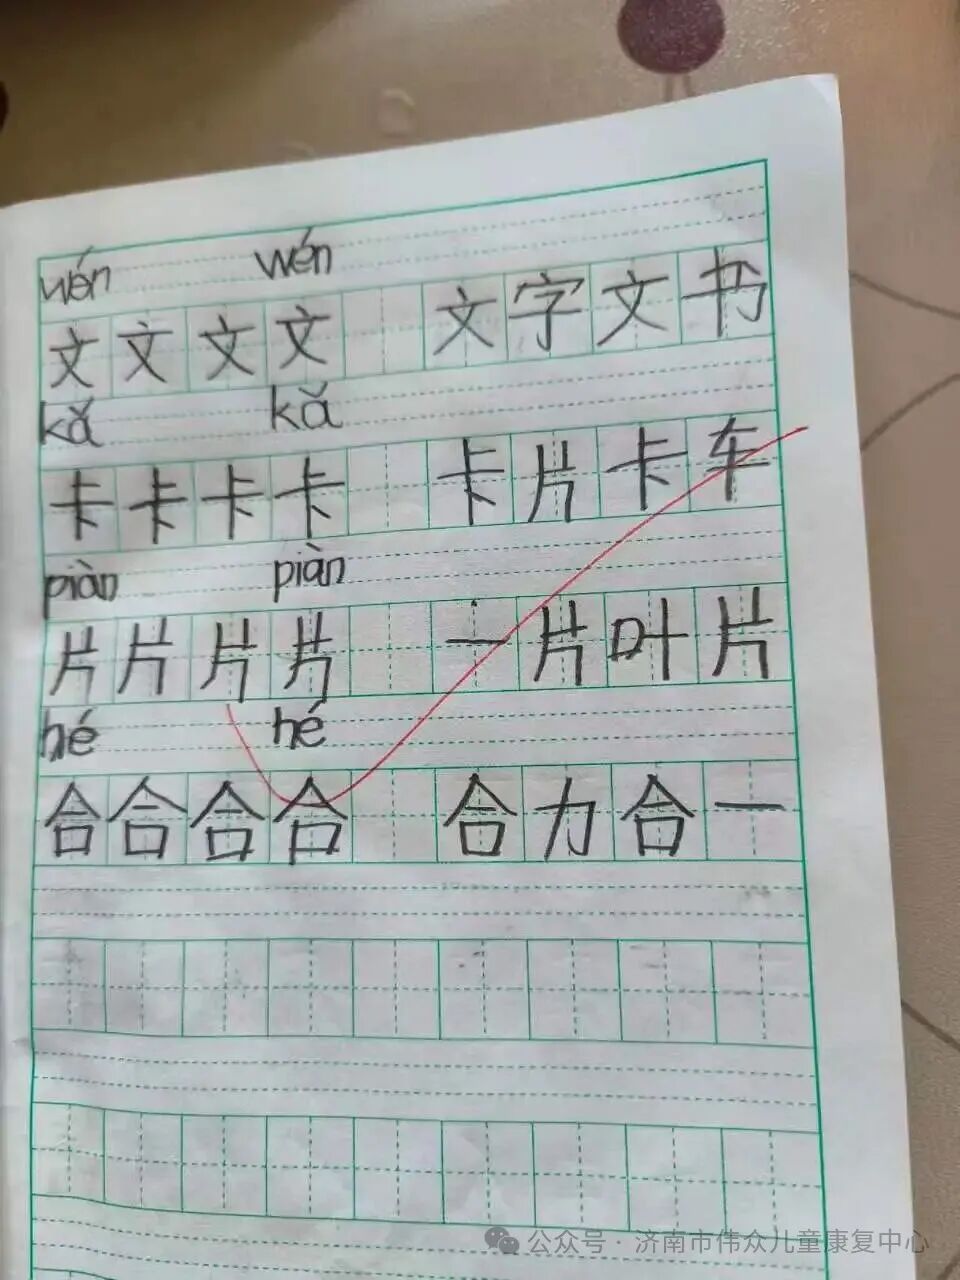 wén wén
文文文文 文字文书
kǎ kǎ
卡卡卡卡 卡片卡车
piàn piàn
片片片片 一片叶片
hé hé
合合合合 合力合一
公众号·济南市伟众儿童康复中心